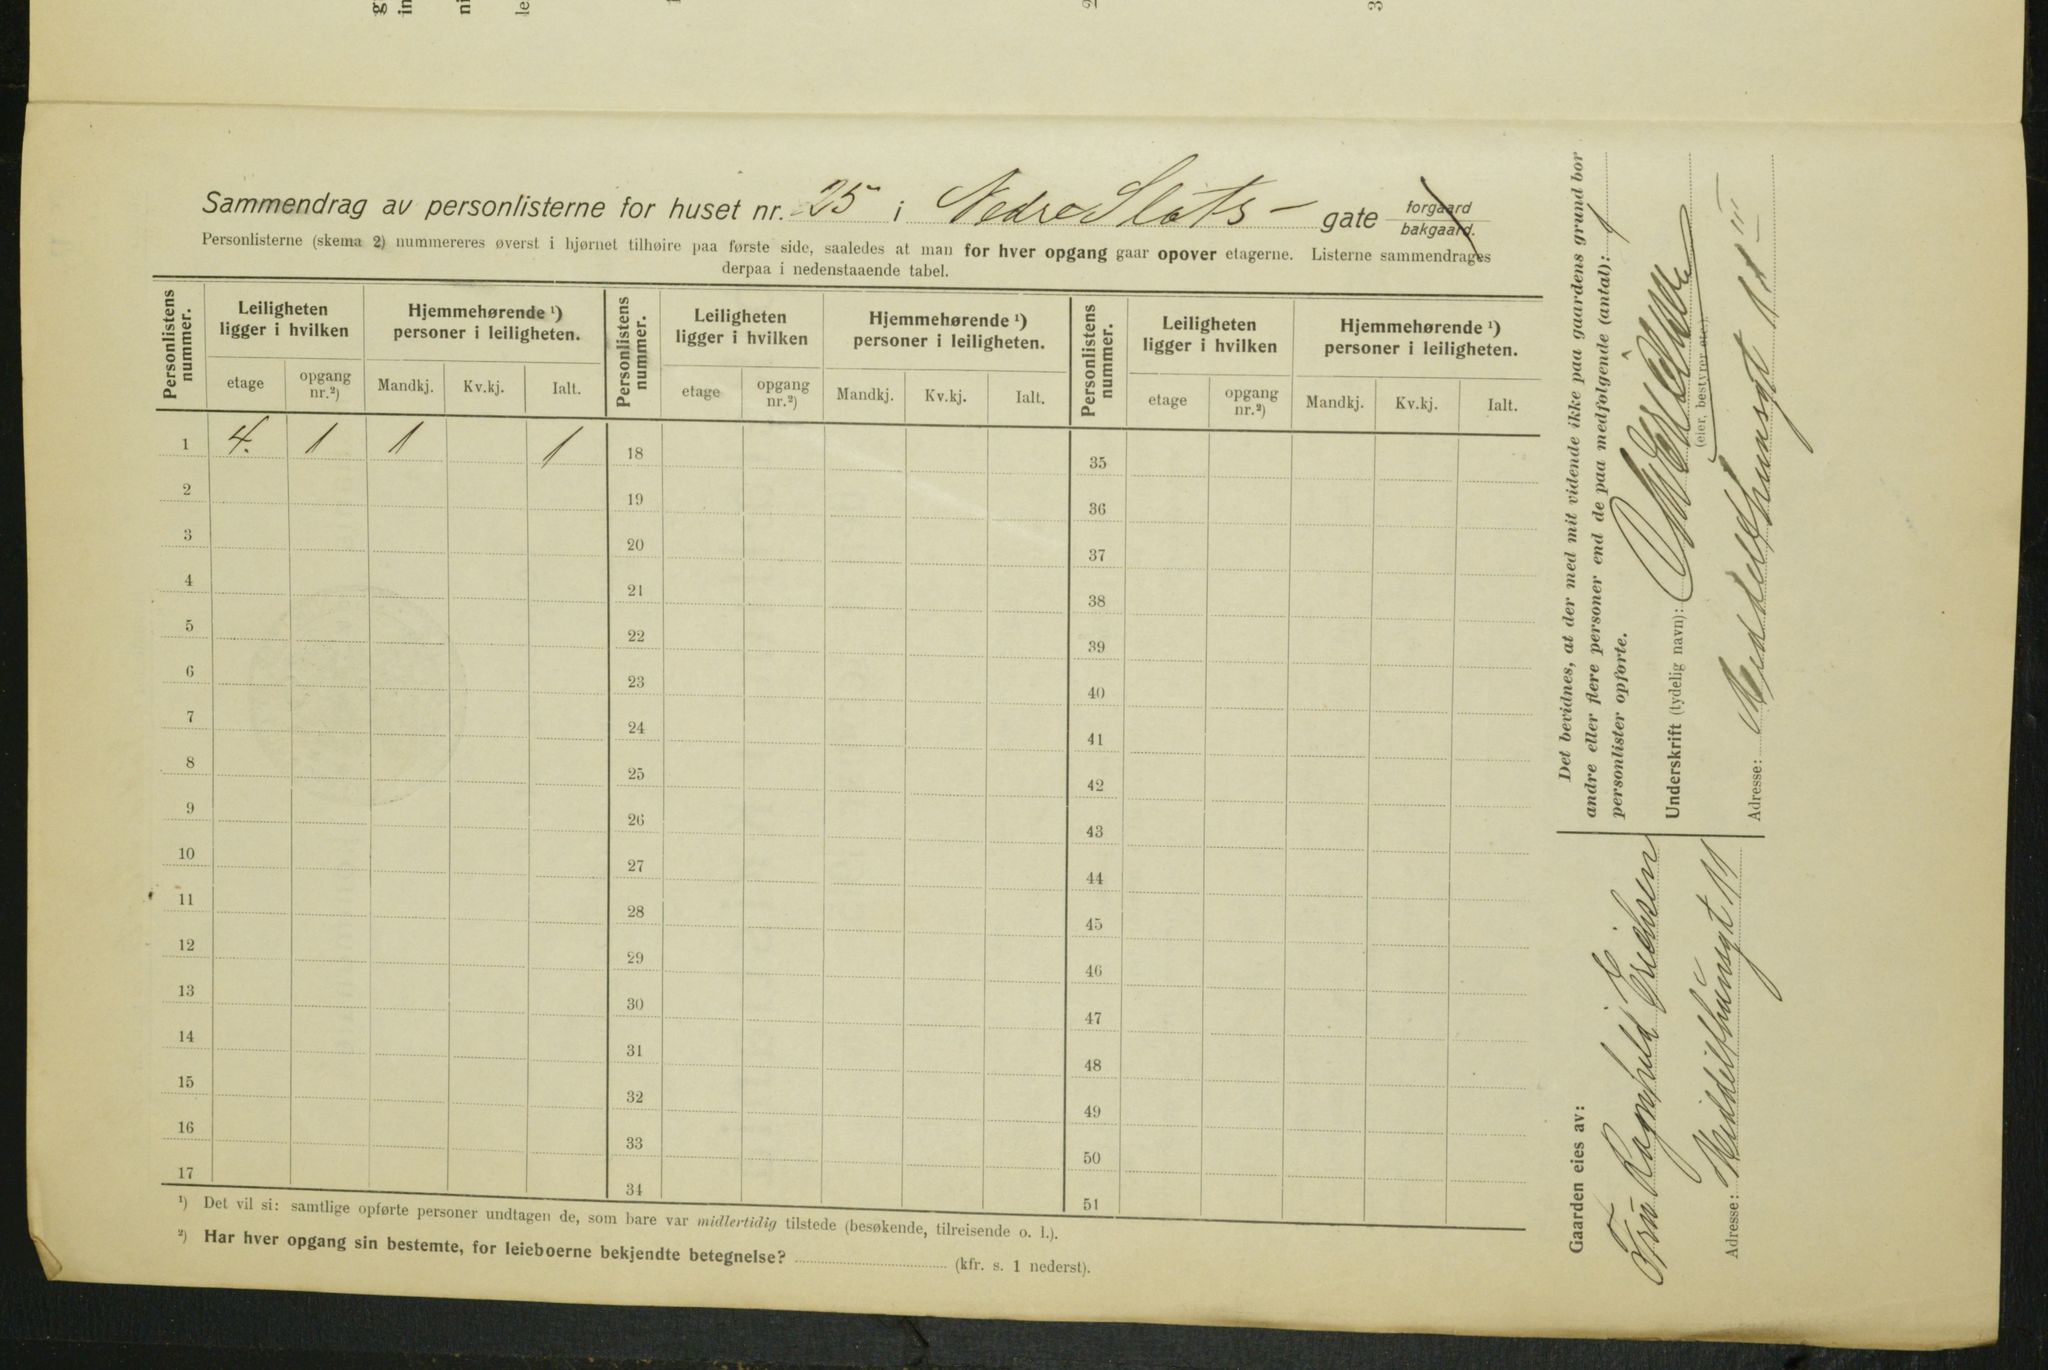 Sammendrag av personlisterne for huset nr. 25 i Nedre Slots- gate forgaard bakgaard.
Personlisterne (skema 2) nummereres øverst i hjørnet tilhøire paa første side, saaledes at man for hver opgang gaar opover etagerne. Listerne sammendrages
derpaa i nedenstaaende tabel.
Personlistens nummer. Leiligheten ligger i hvilken Hjemmehørende ¹) personer i leiligheten. Personlistens nummer. Leiligheten ligger i hvilken Hjemmehørende ¹) personer i leiligheten. Personlistens nummer. Leiligheten ligger i hvilken Hjemmehørende ¹) personer i leiligheten.
etage opgang nr.²) Mandkj. Kv.kj. Ialt. etage opgang nr.²) Mandkj. Kv.kj. Ialt. etage opgang nr.²) Mandkj. Kv.kj. Ialt.
1 4. 1 1 1 18 35
2 19 36
3 20 37
4 21 38
5 22 39
6 23 40
7 24 41
8 25 42
9 26 43
10 27 44
11 28 45
12 29 46
13 30 47
14 31 48
15 32 49
16 33 50
17 34 51
¹) Det vil si: samtlige opførte personer undtagen de, som bare var midlertidig tilstede (besøkende, tilreisende o. l.).
²) Har hver opgang sin bestemte, for leieboerne bekjendte betegnelse? (kfr. s. 1 nederst).
Det bevidnes, at der med mit vidende ikke paa gaardens grund bor
andre eller flere personer end de paa medfølgende (antal): 1
personlister opførte.
Underskrift (tydelig navn):
(eier, bestyrer etc.).
Adresse: Middelthunsgt 11 III
Gaarden eies av:
Fru Ragnhild Erichsen
Adresse: Middelthunsgt 11